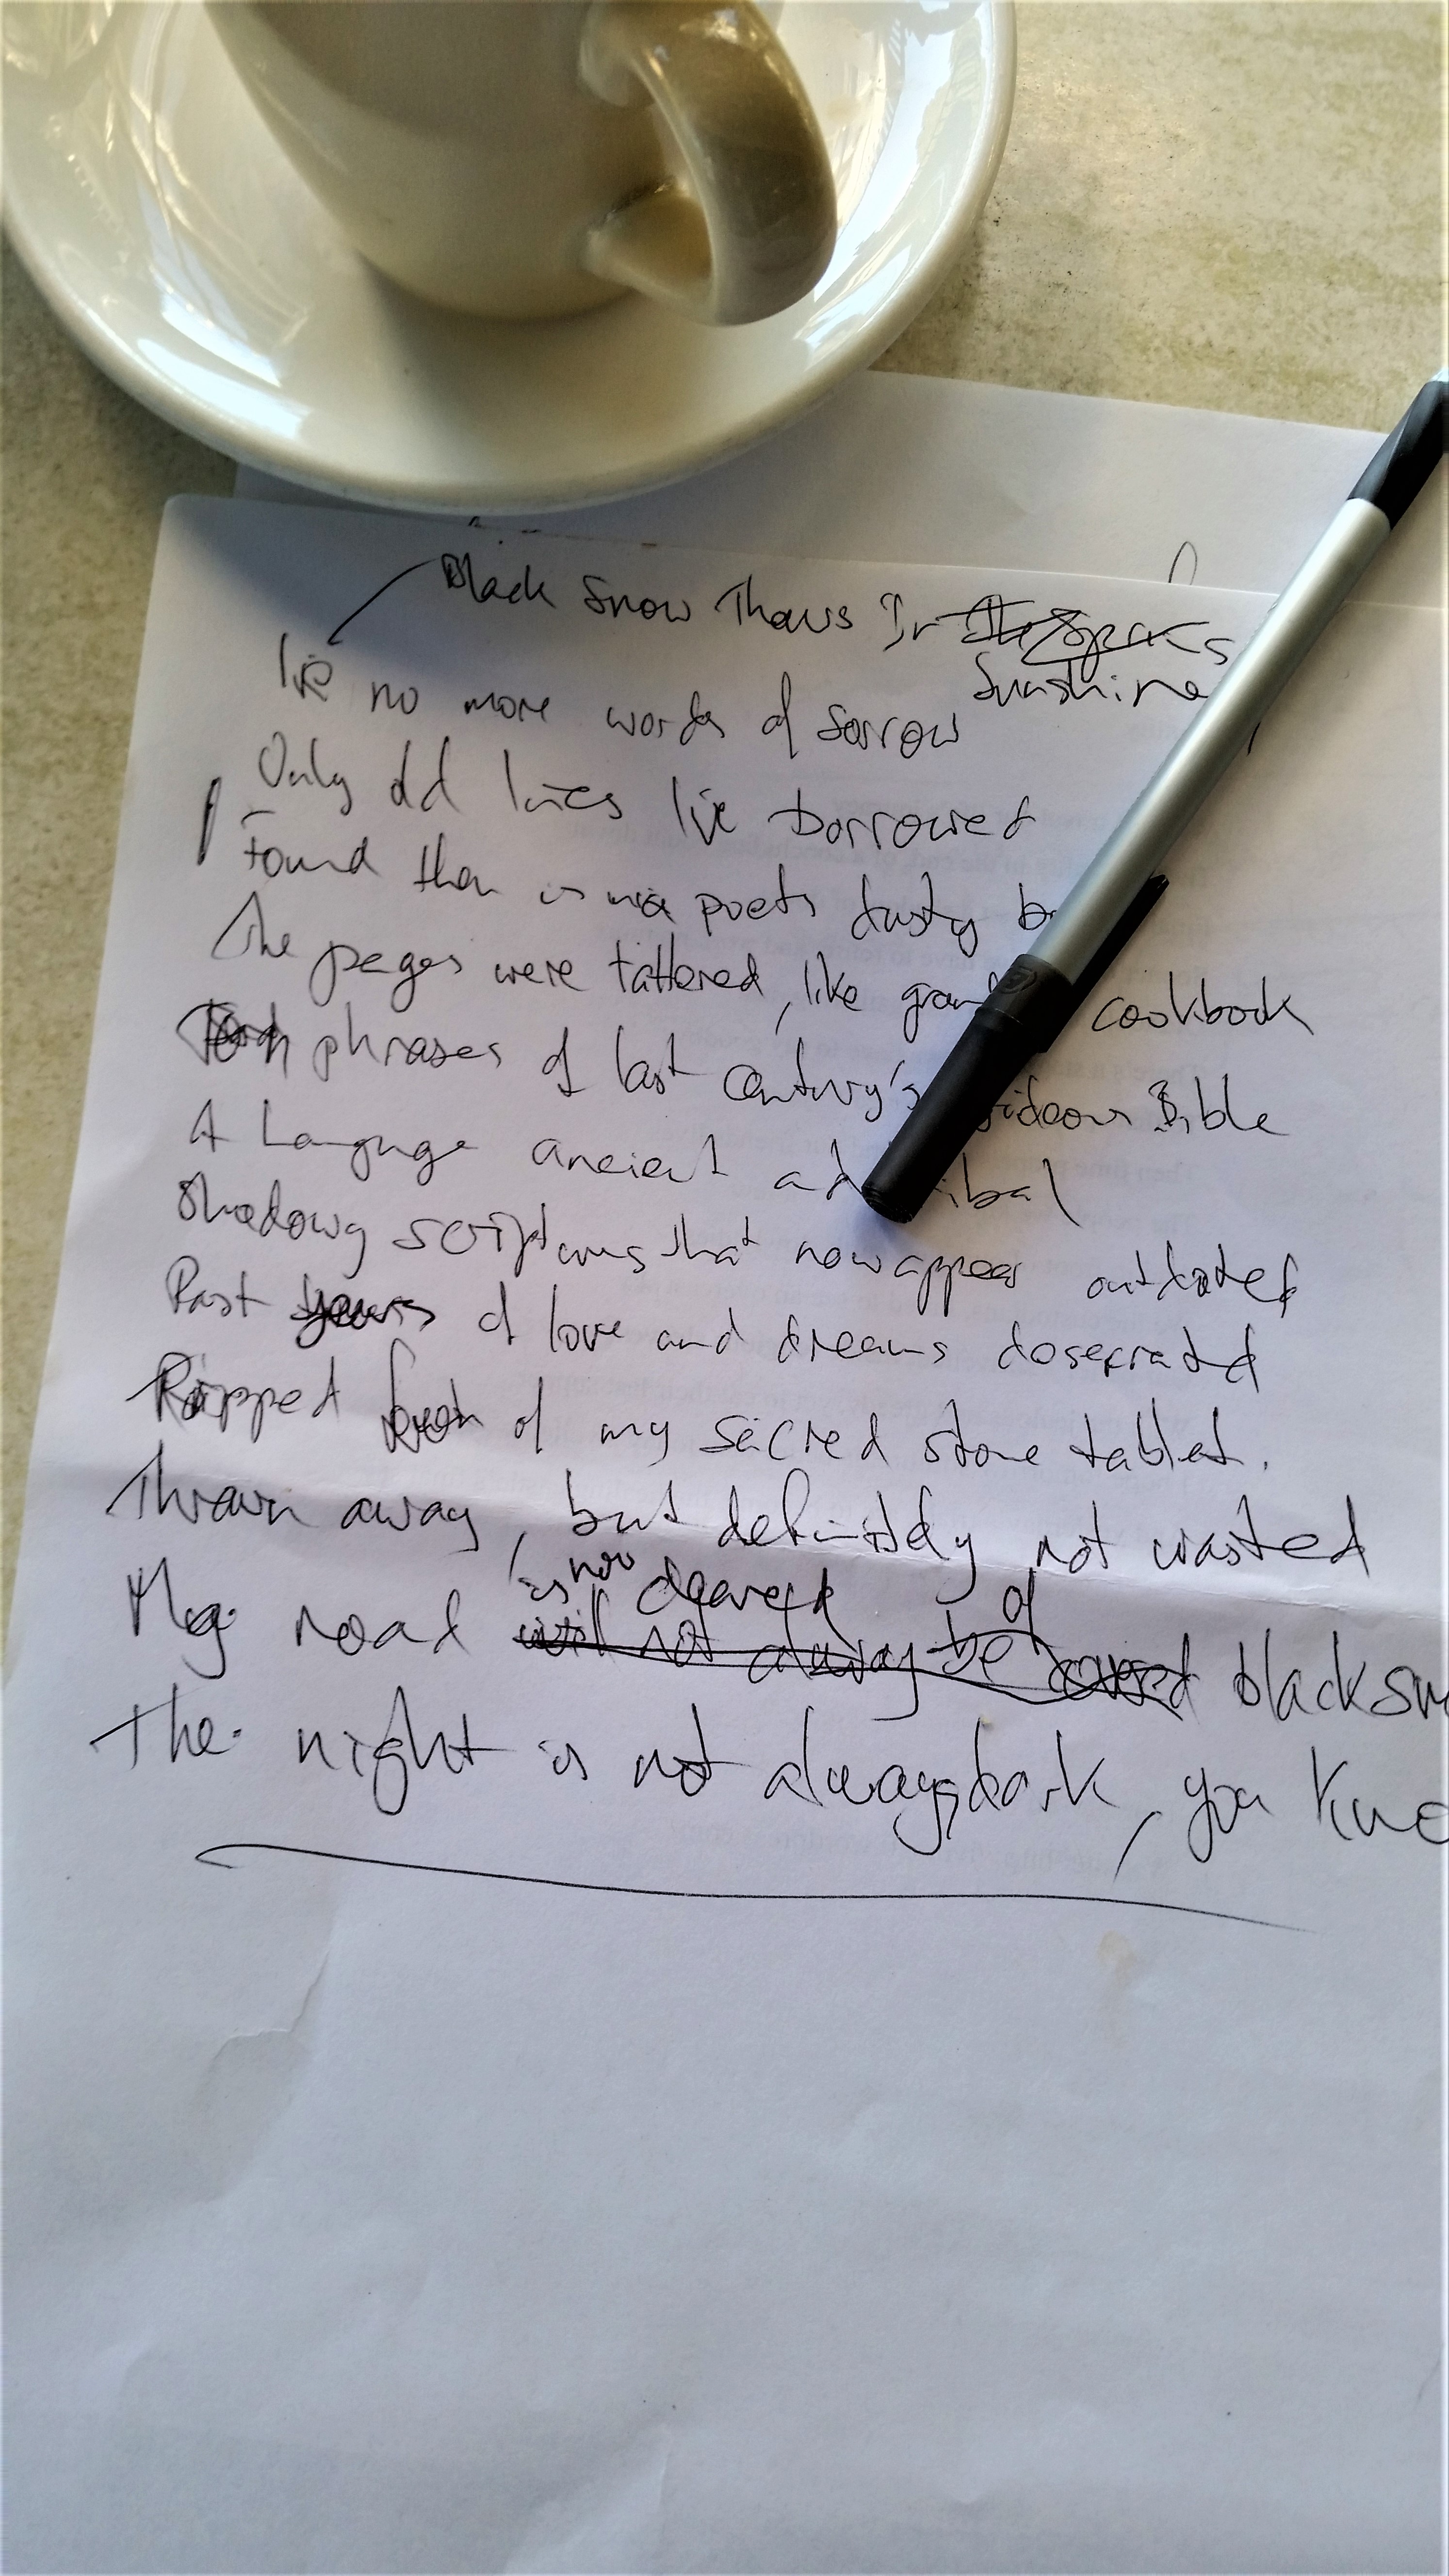 Black Snow Thaws In the Spars
Sunshine
I've no more words of sorrow
Only old lines I've borrowed
Found them in a poets dusty
The pages were tattered, like cookbook
phrases of last century's Bible
A Languge ancient and
Shadowy scriptures that now appear outdated
Past years of love and dreams desecrated
Ripped from of my sacred stone tablet.
Thrown away, but definitely not wasted
is now cleared of
My road will not alway be covered black
The night is not always dark, you